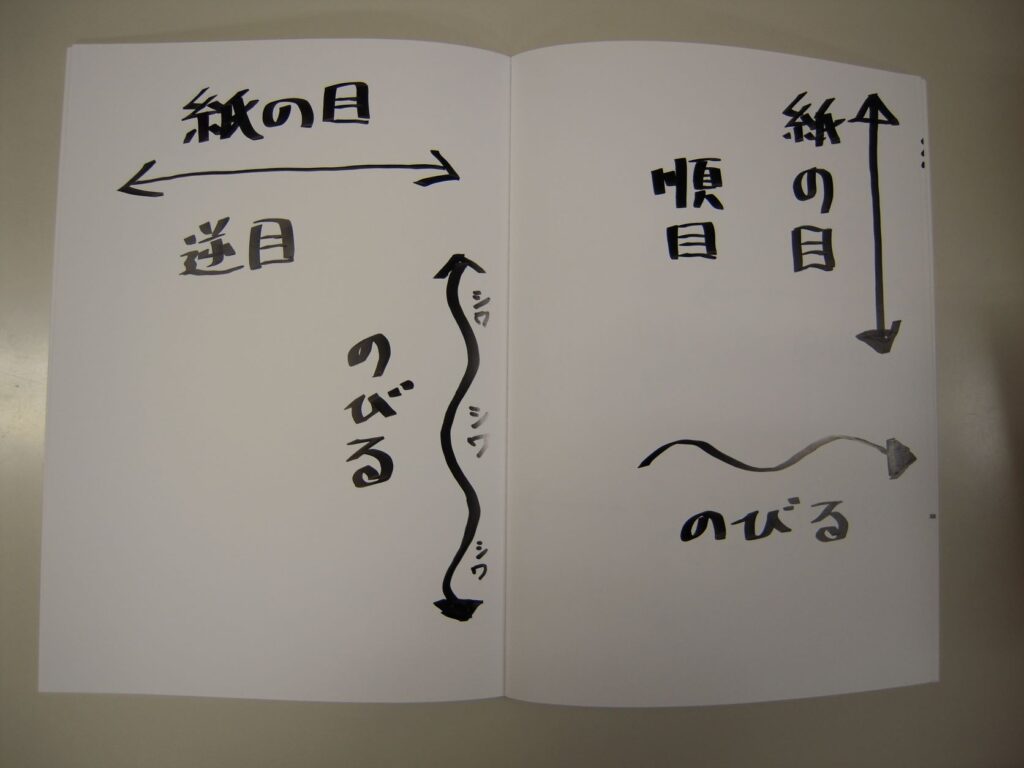 紙の目
逆目
のびる
シワ
シワ
シワ
紙の目
順目
のびる